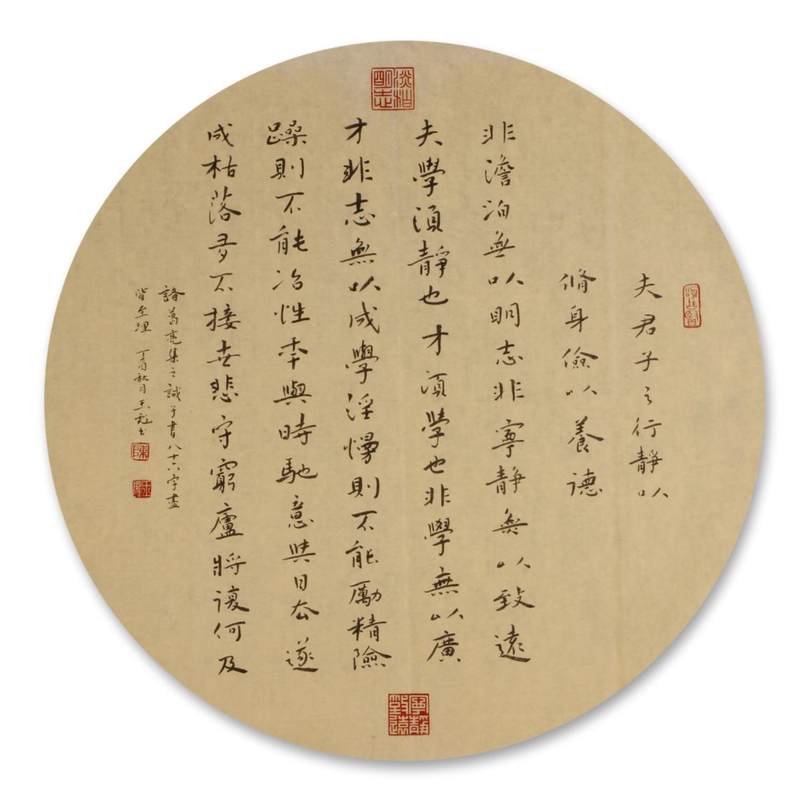 夫君子之行靜以
脩身儉以養德
非澹泊無以明志非寧靜無以致遠
夫學須靜也才須學也非學無以廣
才非志無以成學淫慢則不能勵精險
躁則不能冶性年與時馳意與日去遂
成枯落多不接世悲守窮廬將復何及
諸葛亮集之誡子書八十六字盡
皆至理 丁酉秋月
淡泊明志
寧靜致遠